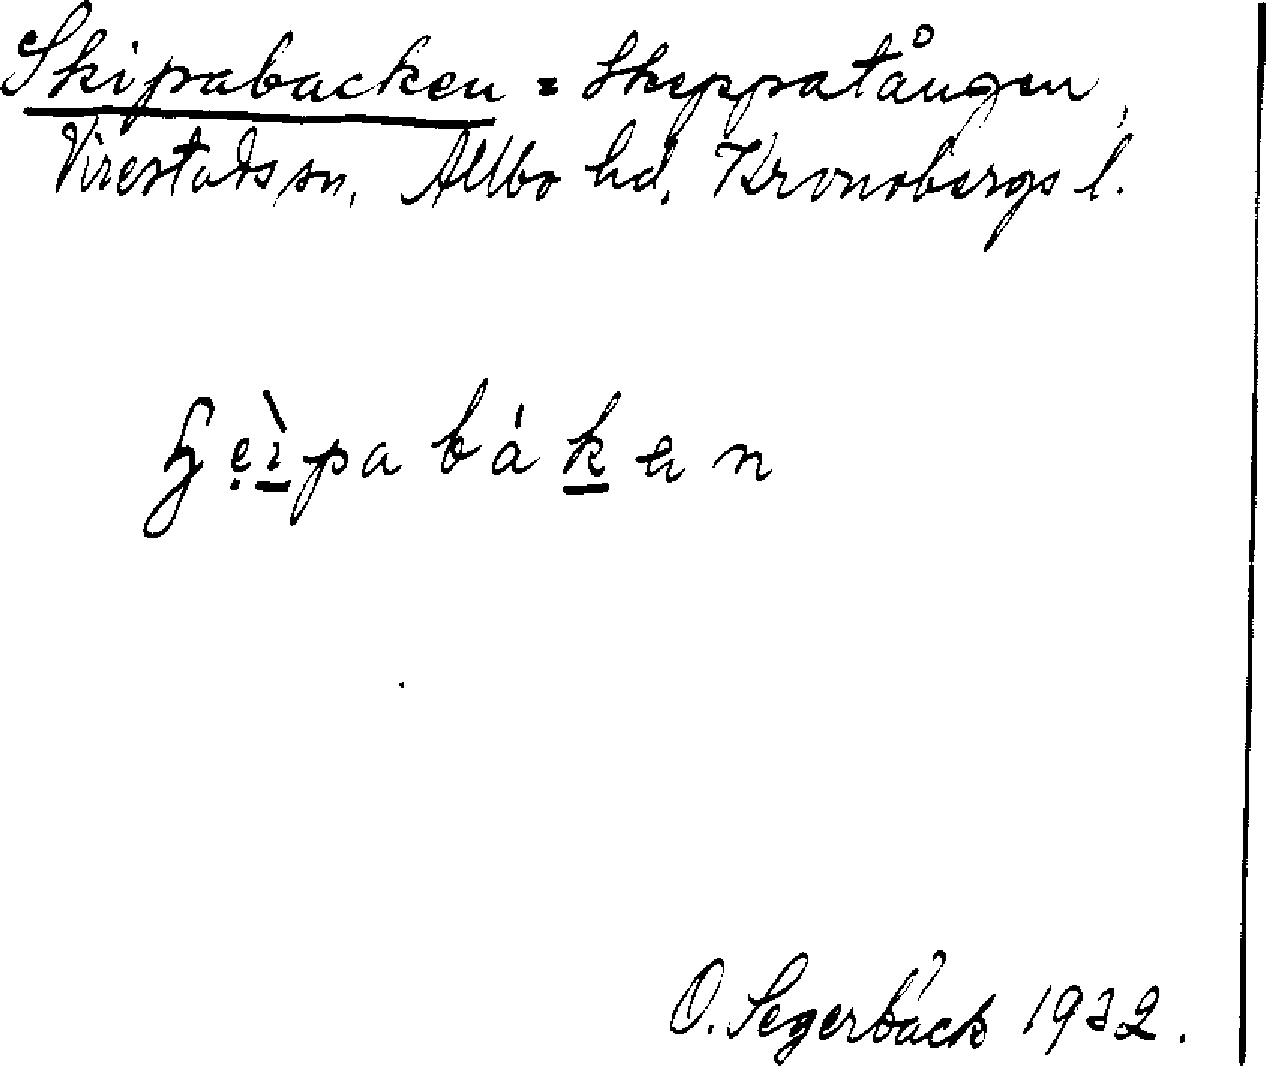 Skipabacken = Skeppatången,
Virestads sn, Allbo hd, Kronobergs l.
O. Segerbäck 1932.